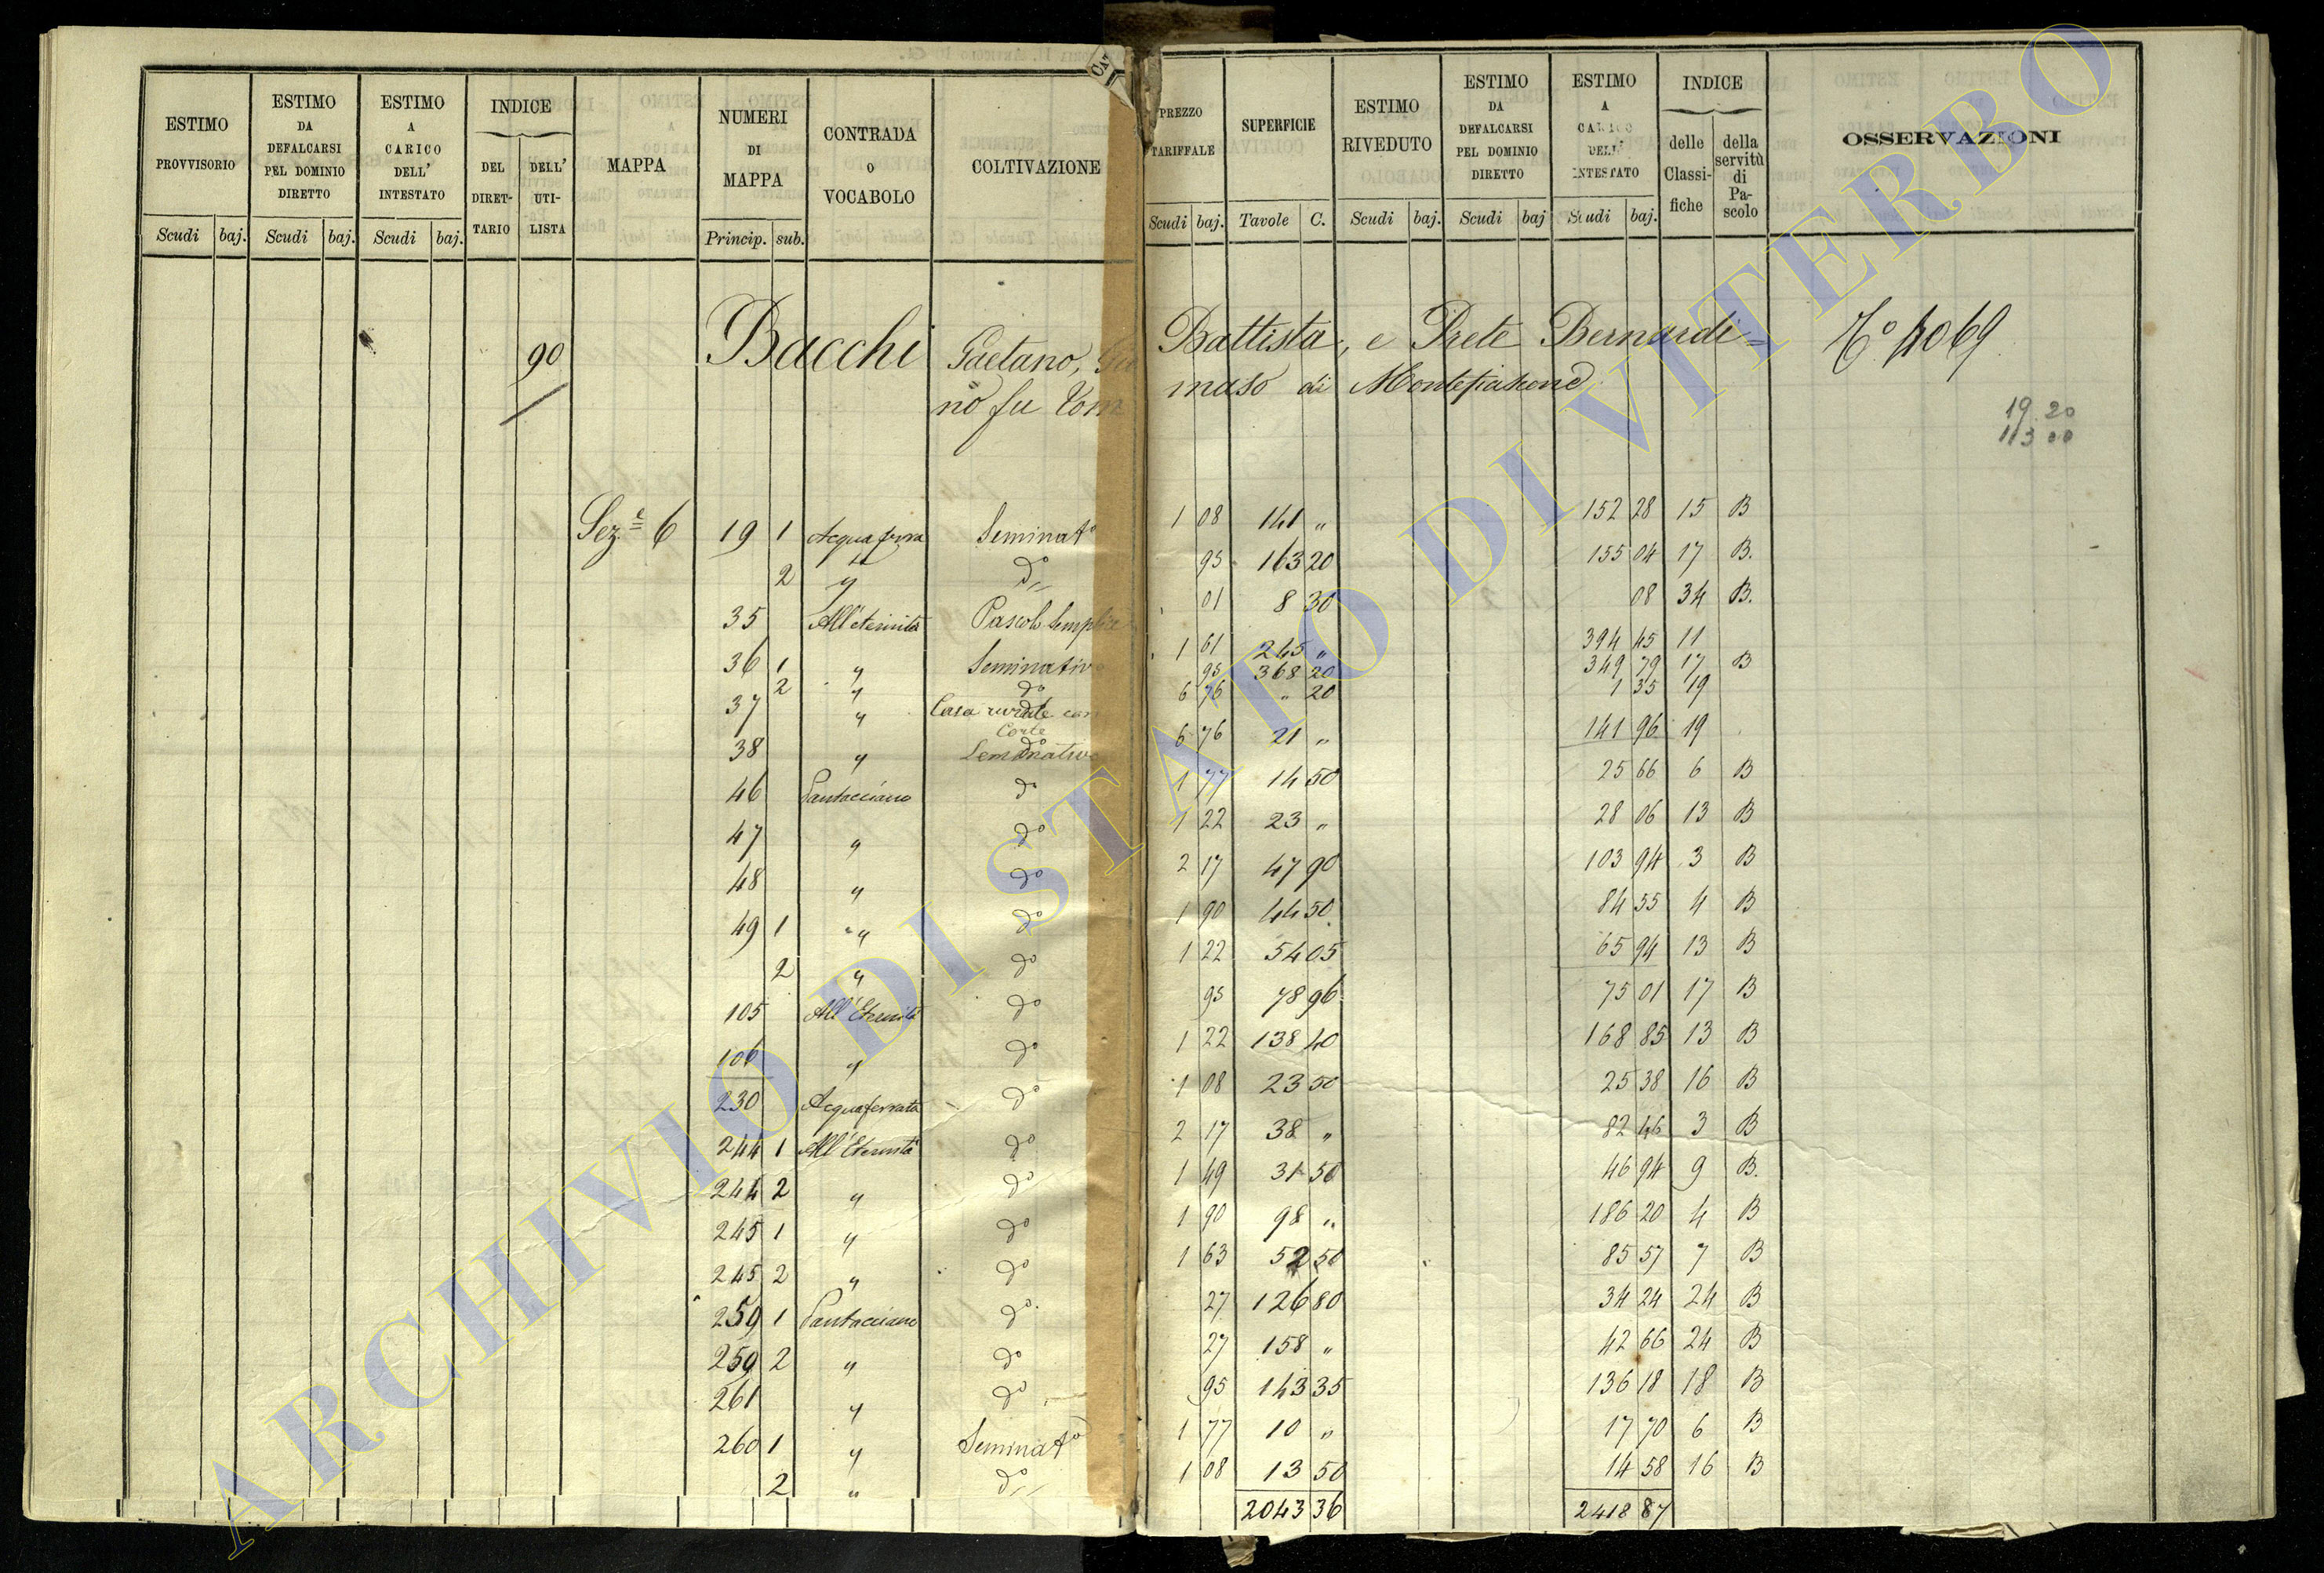 ESTIMO PROVVISORIO | ESTIMO DA DEFALCARSI PEL DOMINIO DIRETTO | ESTIMO A CARICO DELL' INTESTATO | INDICE DEL DIRETTARIO | DELL' UTILISTA | MAPPA | NUMERI DI MAPPA | CONTRADA O VOCABOLO | COLTIVAZIONE | PREZZO TARIFFALE | SUPERFICIE | ESTIMO RIVEDUTO | ESTIMO DA DEFALCARSI PEL DOMINIO DIRETTO | ESTIMO A CARICO DELL' INTESTATO | INDICE delle Classifiche | della servitù di Pascolo | OSSERVAZIONI
Scudi baj. | Scudi baj. | Scudi baj. | Princip. sub. | Scudi baj. | Tavole C. | Scudi baj. | Scudi baj | Scudi baj.
90 Bacchi Gaetano, Battista, e Prete Bernardi= 4069
no fu Tommaso di Montefiascone
19 20
113 00
Seze 6 19 1 Acqua ferra Seminato 1 08 141 " 152 28 15 B
2 " do 95 163 20 155 04 17 B.
35 All'eternità Pascolo Semplice 01 8 30 08 34 B.
36 1 " Seminativo 1 61 245 " 394 45 11
2 " do 95 368 20 349 79 17 B
37 " Casa rurale con Corte 6 76 " 20 1 35 19
38 " do 6 76 21 " 141 96 19
46 Santacciano do 1 77 14 50 25 66 6 B
47 " do 1 22 23 " 28 06 13 B
48 " do 2 17 47 90 103 94 3 B
49 1 " do 1 90 44 50 84 55 4 B
2 " do 1 22 54 05 65 94 13 B
105 All'Eternità do 95 78 96 75 01 17 B
106 " do 1 22 138 40 168 85 13 B
230 Acquaferrata do 1 08 23 50 25 38 16 B
244 1 All'Eternità do 2 17 38 " 82 46 3 B
244 2 " do 1 49 31 50 46 94 9 B.
245 1 " do 1 90 98 " 186 20 4 B
245 2 " do 1 63 52 50 85 57 7 B
259 1 Santacciano do 27 126 80 34 24 24 B
259 2 " do 27 158 " 42 66 24 B
261 " do 95 143 35 136 18 18 B
260 1 " Seminato 1 77 10 " 17 70 6 B
2 " do 1 08 13 50 14 58 16 B
2043 36 2418 87
ARCHIVIO DI STATO DI VITERBO